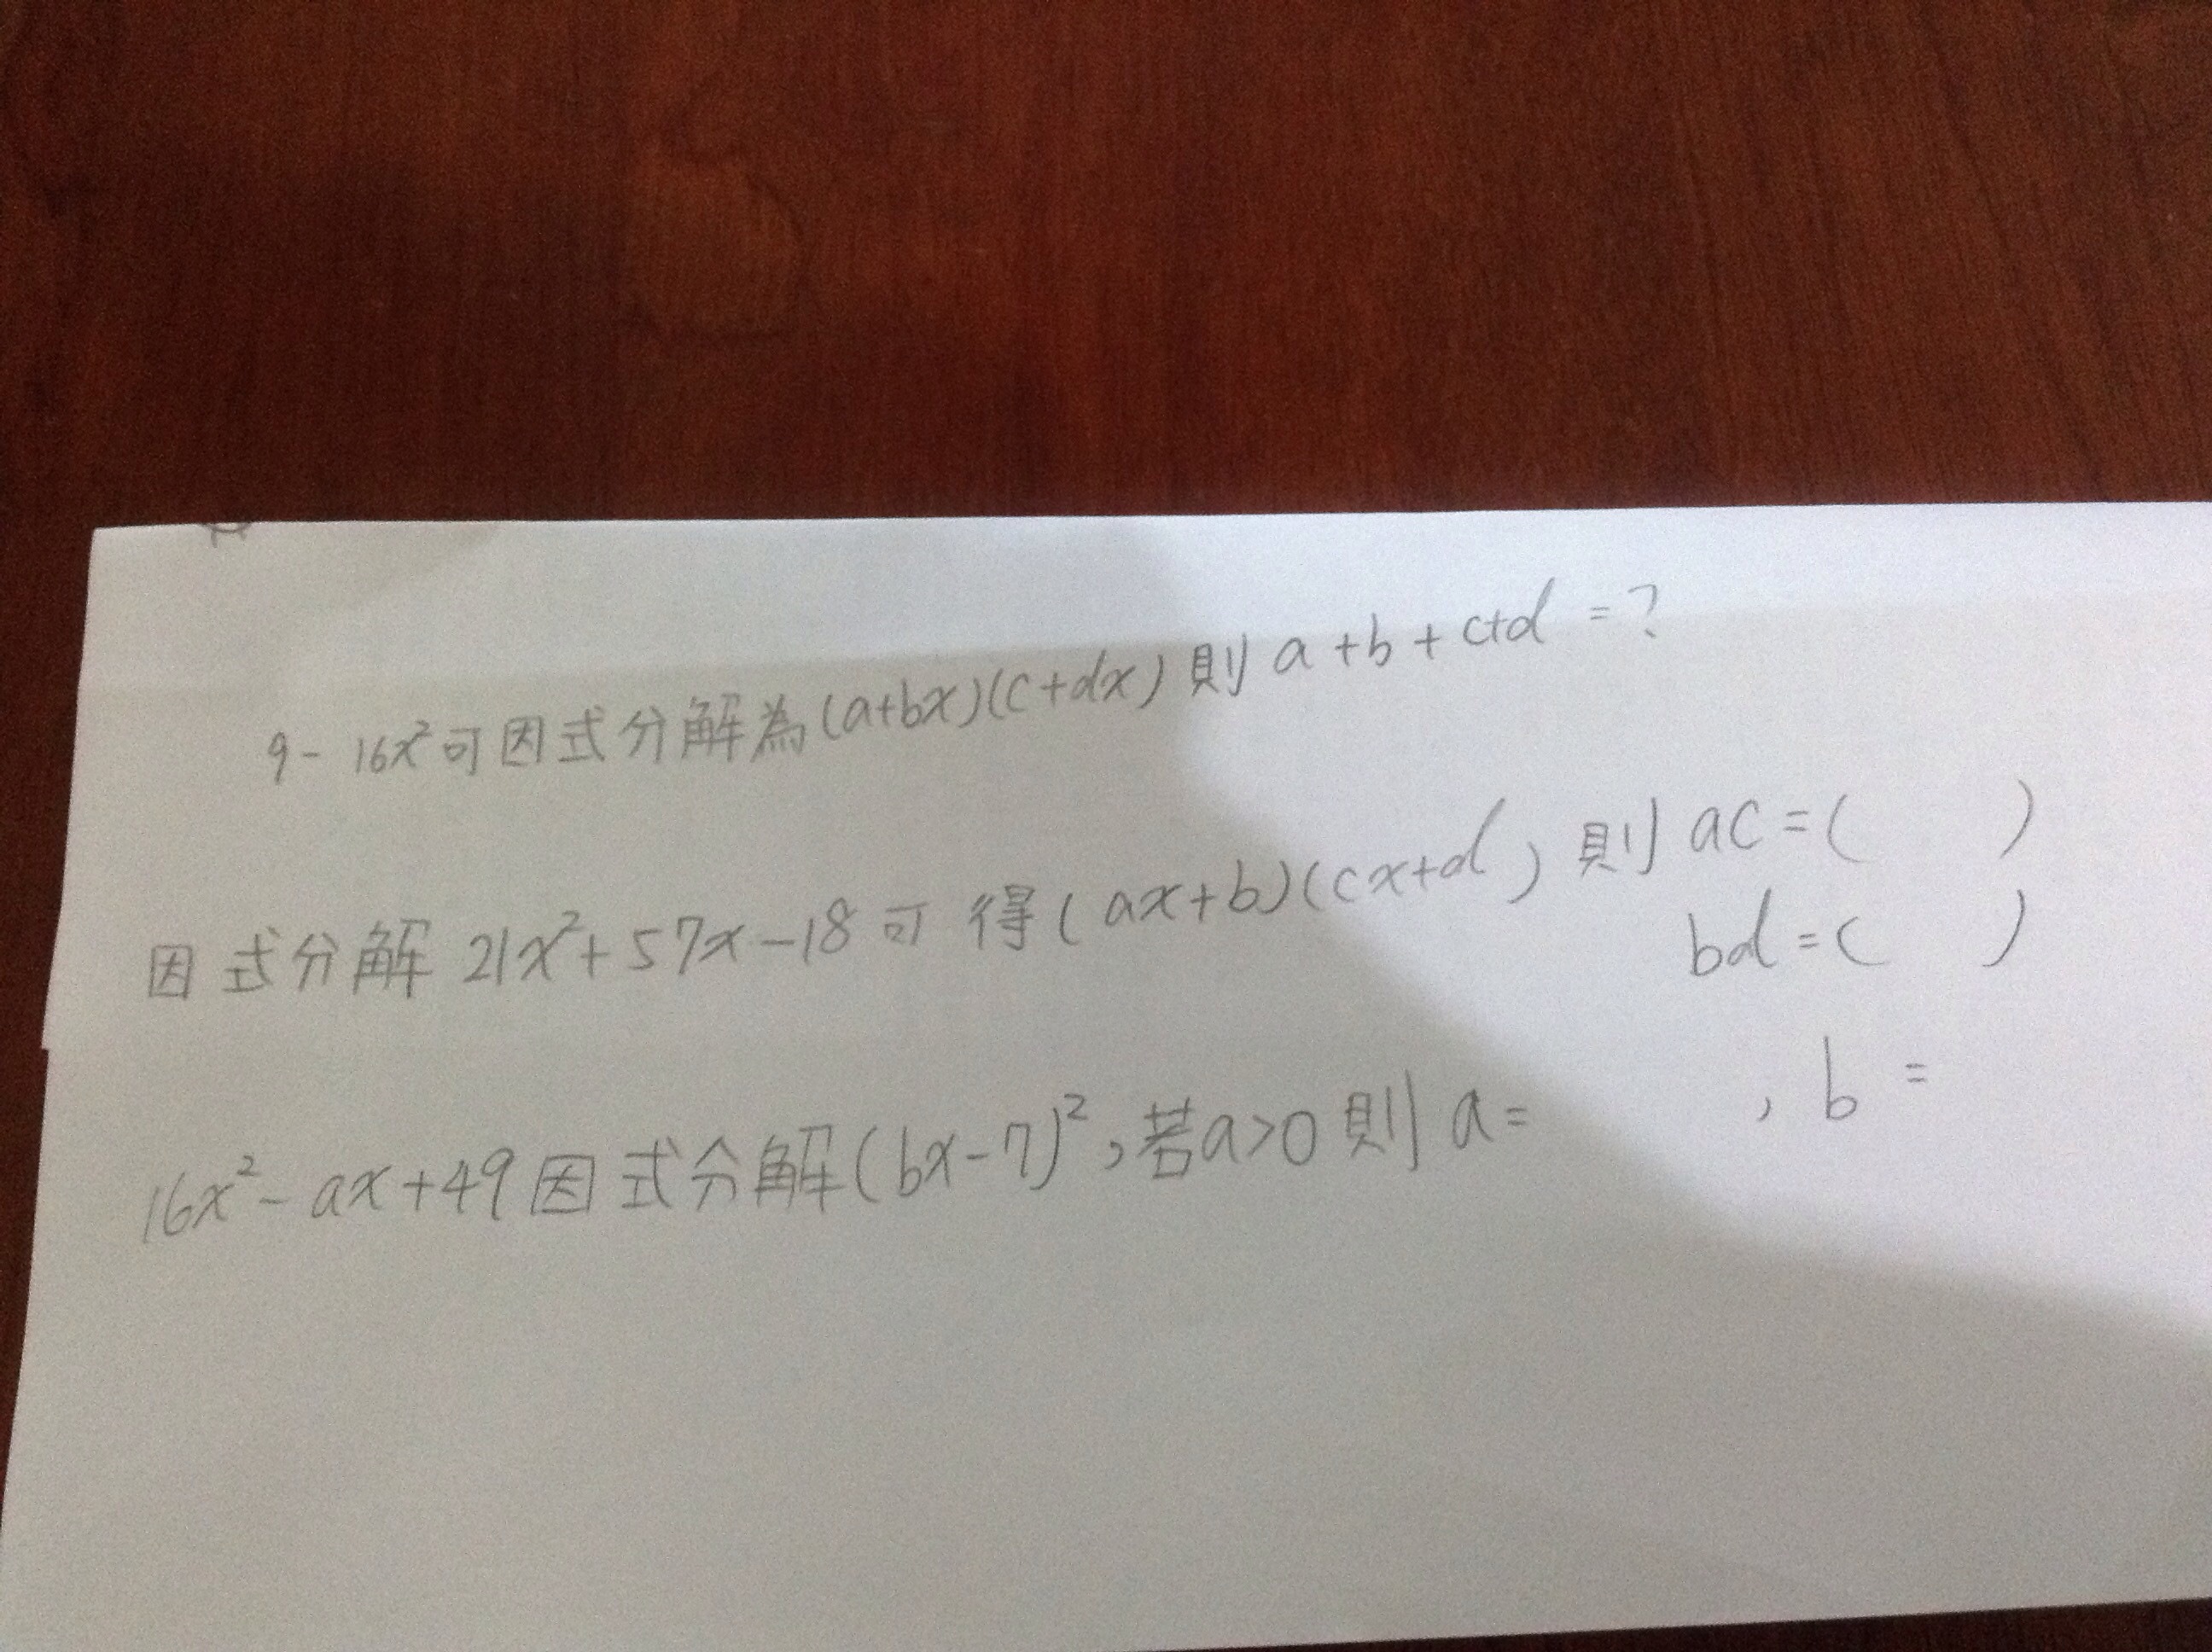 9-16x²可因式分解為(a+bx)(c+dx)則 a+b+c+d=?
因式分解 21x²+57x-18可得(ax+b)(cx+d)則 ac=( )
bd=( )
16x²-ax+49因式分解(bx-7)²,若a>0則 a= , b=